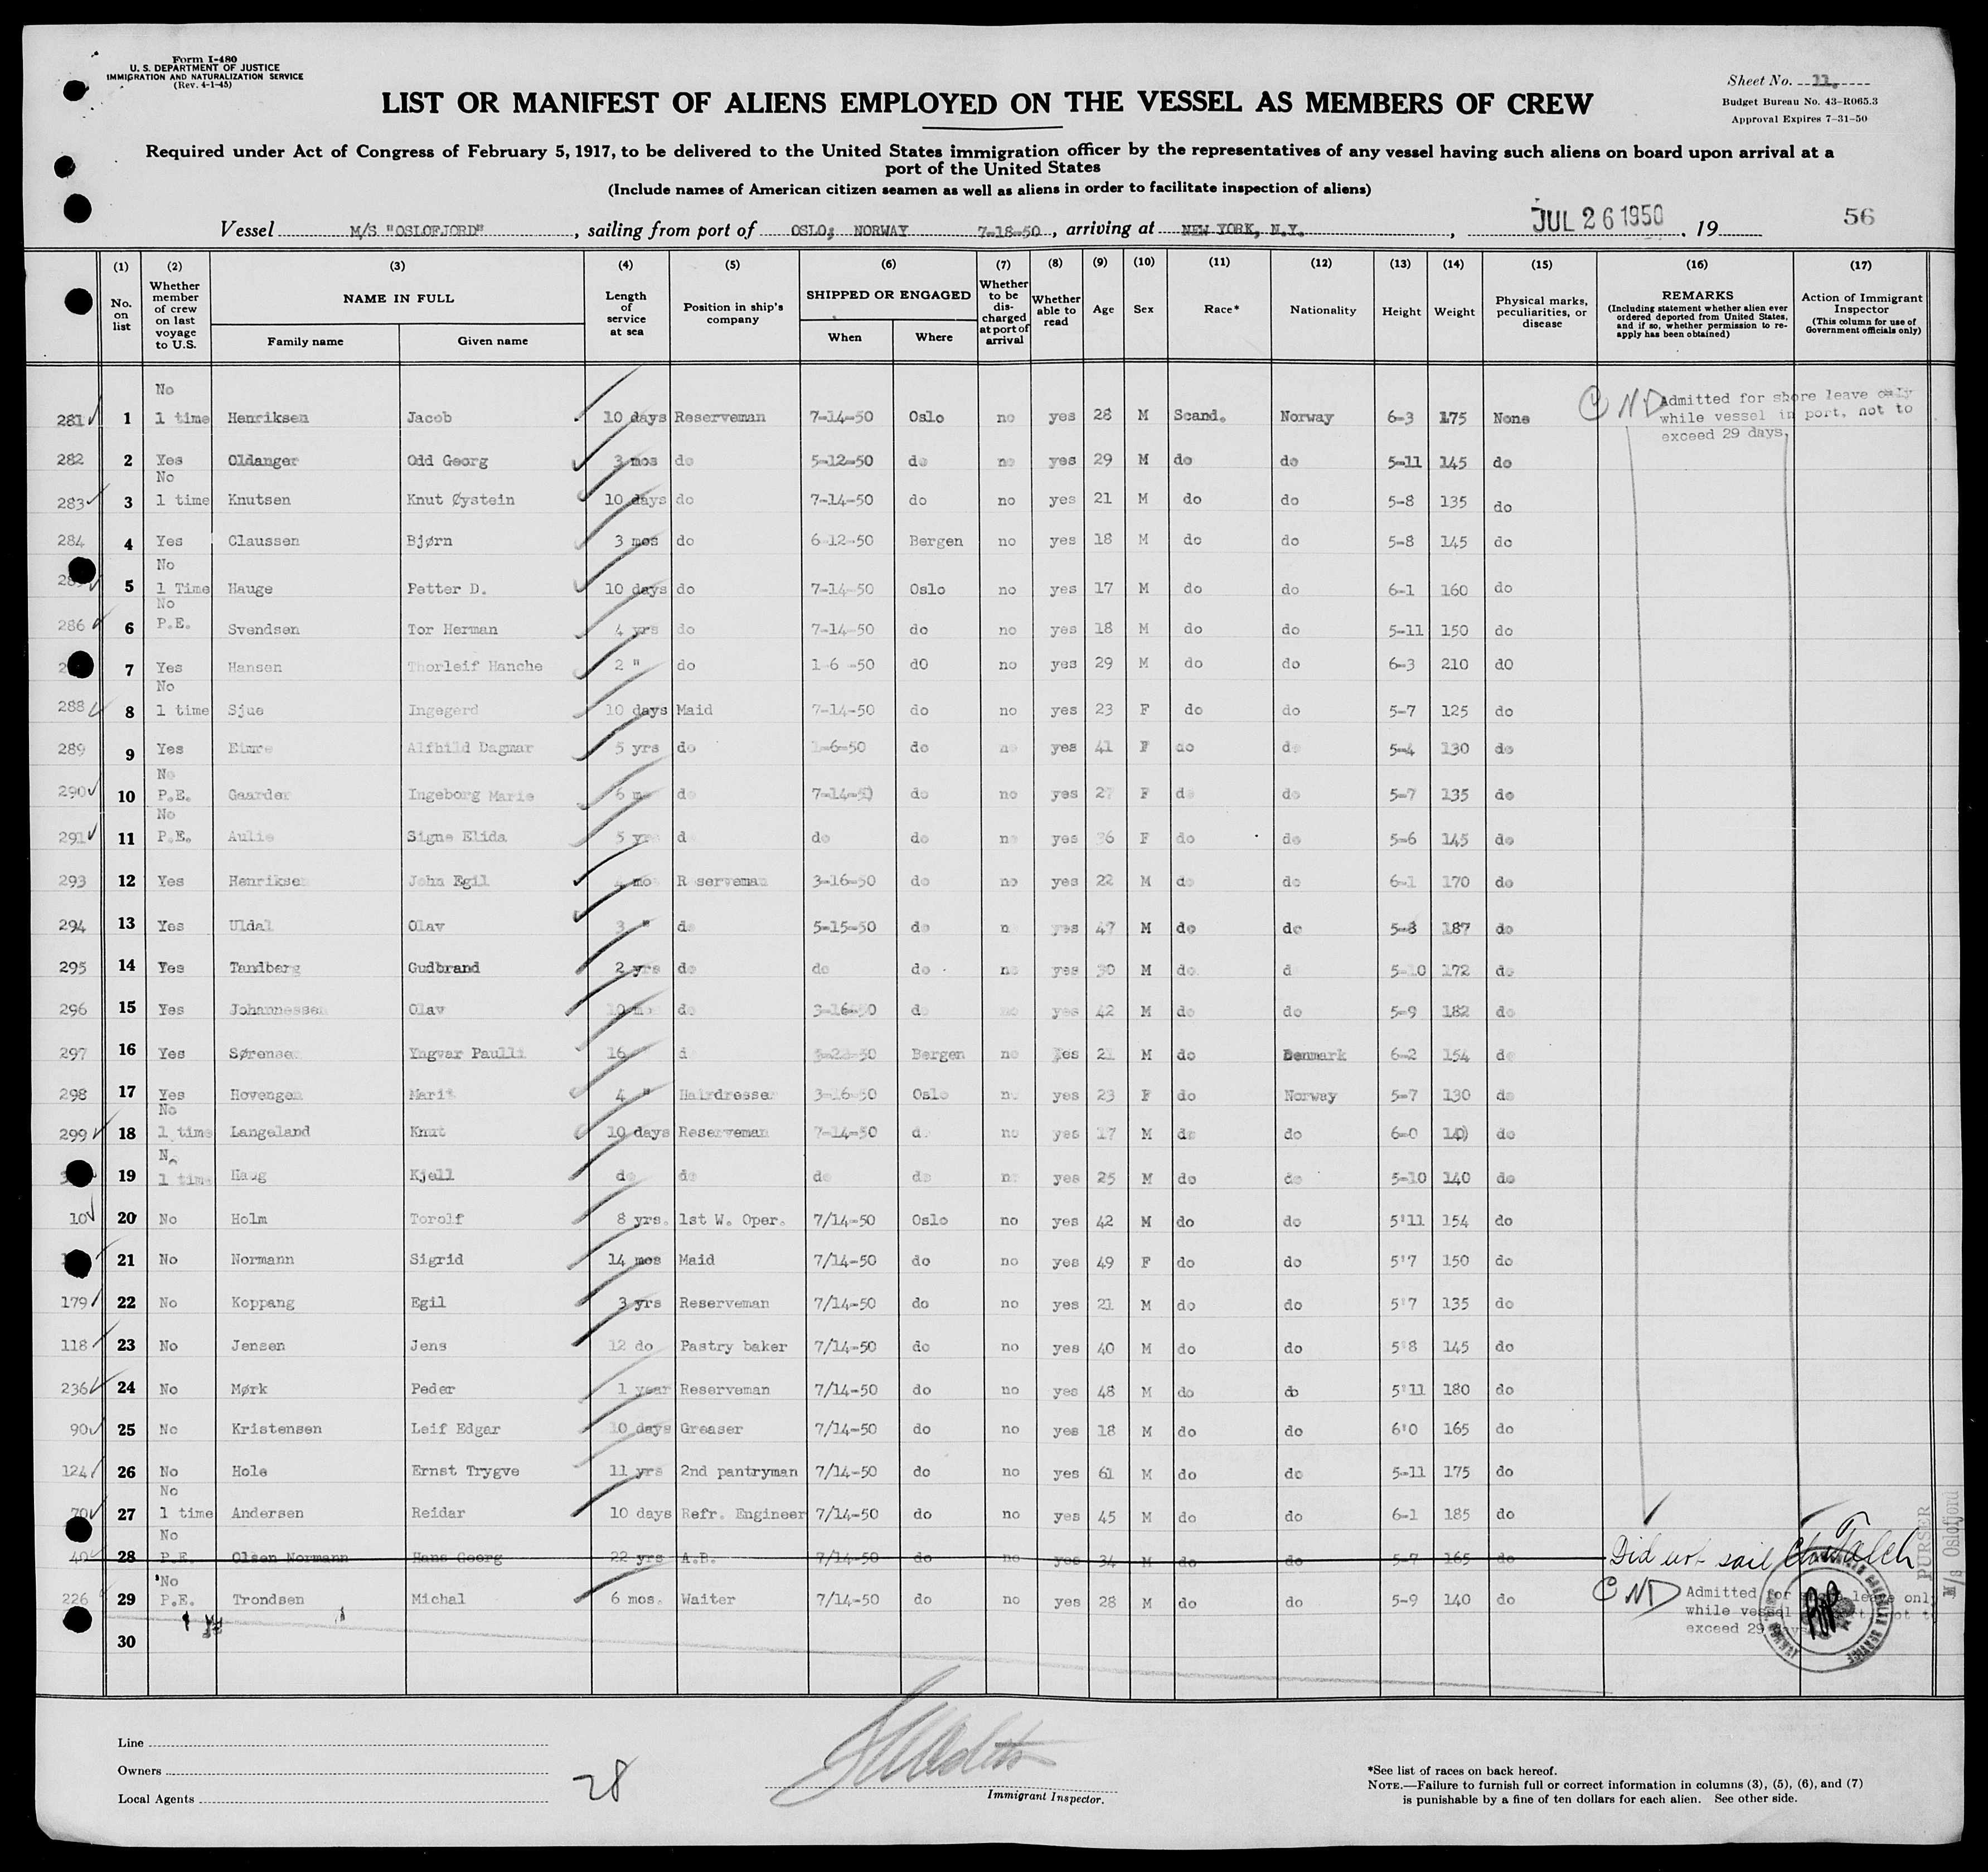 Form I-480
U. S. DEPARTMENT OF JUSTICE
IMMIGRATION AND NATURALIZATION SERVICE
(Rev. 4-1-45)
Sheet No. 11.
Budget Bureau No. 43-R065.3
Approval Expires 7-31-50
LIST OR MANIFEST OF ALIENS EMPLOYED ON THE VESSEL AS MEMBERS OF CREW
Required under Act of Congress of February 5, 1917, to be delivered to the United States immigration officer by the representatives of any vessel having such aliens on board upon arrival at a
port of the United States
(Include names of American citizen seamen as well as aliens in order to facilitate inspection of aliens)
Vessel M/S "OSLOFJORD", sailing from port of OSLO, NORWAY 7-18-50, arriving at NEW YORK, N.Y., JUL 26 1950, 19 56
(1) (2) (3) (4) (5) (6) (7) (8) (9) (10) (11) (12) (13) (14) (15) (16) (17)
No. on list
Whether member of crew on last voyage to U.S.
NAME IN FULL
Family name
Given name
Length of service at sea
Position in ship's company
SHIPPED OR ENGAGED
When
Where
Whether to be discharged at port of arrival
Whether able to read
Age
Sex
Race*
Nationality
Height
Weight
Physical marks, peculiarities, or disease
REMARKS
(Including statement whether alien ever ordered deported from United States, and if so, whether permission to re-apply has been obtained)
Action of Immigrant Inspector
(This column for use of Government officials only)
No
281 1 1 time Henriksen Jacob 10 days Reserveman 7-14-50 Oslo no yes 28 M Scand. Norway 6-3 175 None
ND Admitted for shore leave only
while vessel in port, not to
exceed 29 days.
282 2 Yes Oldanger Odd Georg 3 mos do 5-12-50 do no yes 29 M do do 5-11 145 do
No
283 3 1 time Knutsen Knut Øystein 10 days do 7-14-50 do no yes 21 M do do 5-8 135 do
284 4 Yes Claussen Bjørn 3 mos do 6-12-50 Bergen no yes 18 M do do 5-8 145 do
No
5 1 Time Hauge Petter D. 10 days do 7-14-50 Oslo no yes 17 M do do 6-1 160 do
No
286 6 P.E. Svendsen Tor Herman 4 yrs do 7-14-50 do no yes 18 M do do 5-11 150 do
7 Yes Hansen Thorleif Hanche 2 " do 1-6-50 dO no yes 29 M do do 6-3 210 dO
No
288 8 1 time Sjue Ingegerd 10 days Maid 7-14-50 do no yes 23 F do do 5-7 125 do
289 9 Yes Eimre Alfhild Dagmar 5 yrs do 1-6-50 do no yes 41 F do do 5-4 130 do
No
290 10 P.E. Gaarder Ingeborg Marie 6 m do 7-14-50 do no yes 27 F do do 5-7 135 do
No
291 11 P.E. Aulie Signe Elida 5 yrs d do do no yes 36 F do do 5-6 145 do
293 12 Yes Henriksen John Egil mo Reserveman 3-16-50 do no yes 22 M do do 6-1 170 do
294 13 Yes Uldal Olav 3 " do 5-15-50 do n yes 47 M do do 5-8 187 do
295 14 Yes Tandberg Gudbrand 2 yrs do do do no yes 30 M do d 5-10 172 do
296 15 Yes Johannessen Olav 10 mo do 3-16-50 do no yes 42 M do do 5-9 182 do
297 16 Yes Sørensen Yngvar Paulli 16 d 50 Bergen no yes 21 M do Denmark 6-2 154 do
298 17 Yes Hovengen Marit 4 " Hairdresser 3-16-50 Oslo no yes 23 F do Norway 5-7 130 do
No
299 18 1 time Langeland Knut 10 days Reserveman 7-14-50 do no yes 17 M do do 6-0 140 do
No
19 1 time Haug Kjell do do do do no yes 25 M do do 5-10 140 do
10 20 No Holm Torolf 8 yrs. 1st W. Oper. 7/14-50 Oslo no yes 42 M do do 5'11 154 do
21 No Normann Sigrid 14 mos Maid 7/14-50 do no yes 49 F do do 5'7 150 do
179 22 No Koppang Egil 3 yrs Reserveman 7/14-50 do no yes 21 M do do 5'7 135 do
118 23 No Jensen Jens 12 do Pastry baker 7/14-50 do no yes 40 M do do 5'8 145 do
236 24 No Mørk Peder 1 year Reserveman 7/14-50 do no yes 48 M do do 5'11 180 do
90 25 No Kristensen Leif Edgar 10 days Greaser 7/14-50 do no yes 18 M do do 6'0 165 do
124 26 No Hole Ernst Trygve 11 yrs 2nd pantryman 7/14-50 do no yes 61 M do do 5-11 175 do
No
70 27 1 time Andersen Reidar 10 days Refr. Engineer 7/14-50 do no yes 45 M do do 6-1 185 do
No
40 28 P.E. Olsen Normann Hans Georg 22 yrs A.B. 7/14-50 do no yes 34 M do do 5-7 165 do Did not sail
No
226 29 P.E. Trondsen Michal 6 mos. Waiter 7/14-50 do no yes 28 M do do 5-9 140 do
ND Admitted for shore leave only
while vessel in port, not to
exceed 29 days
30
PURSER
M/S Oslofjord
Line
Owners
Local Agents
28
Immigrant Inspector.
*See list of races on back hereof.
NOTE.—Failure to furnish full or correct information in columns (3), (5), (6), and (7)
is punishable by a fine of ten dollars for each alien. See other side.